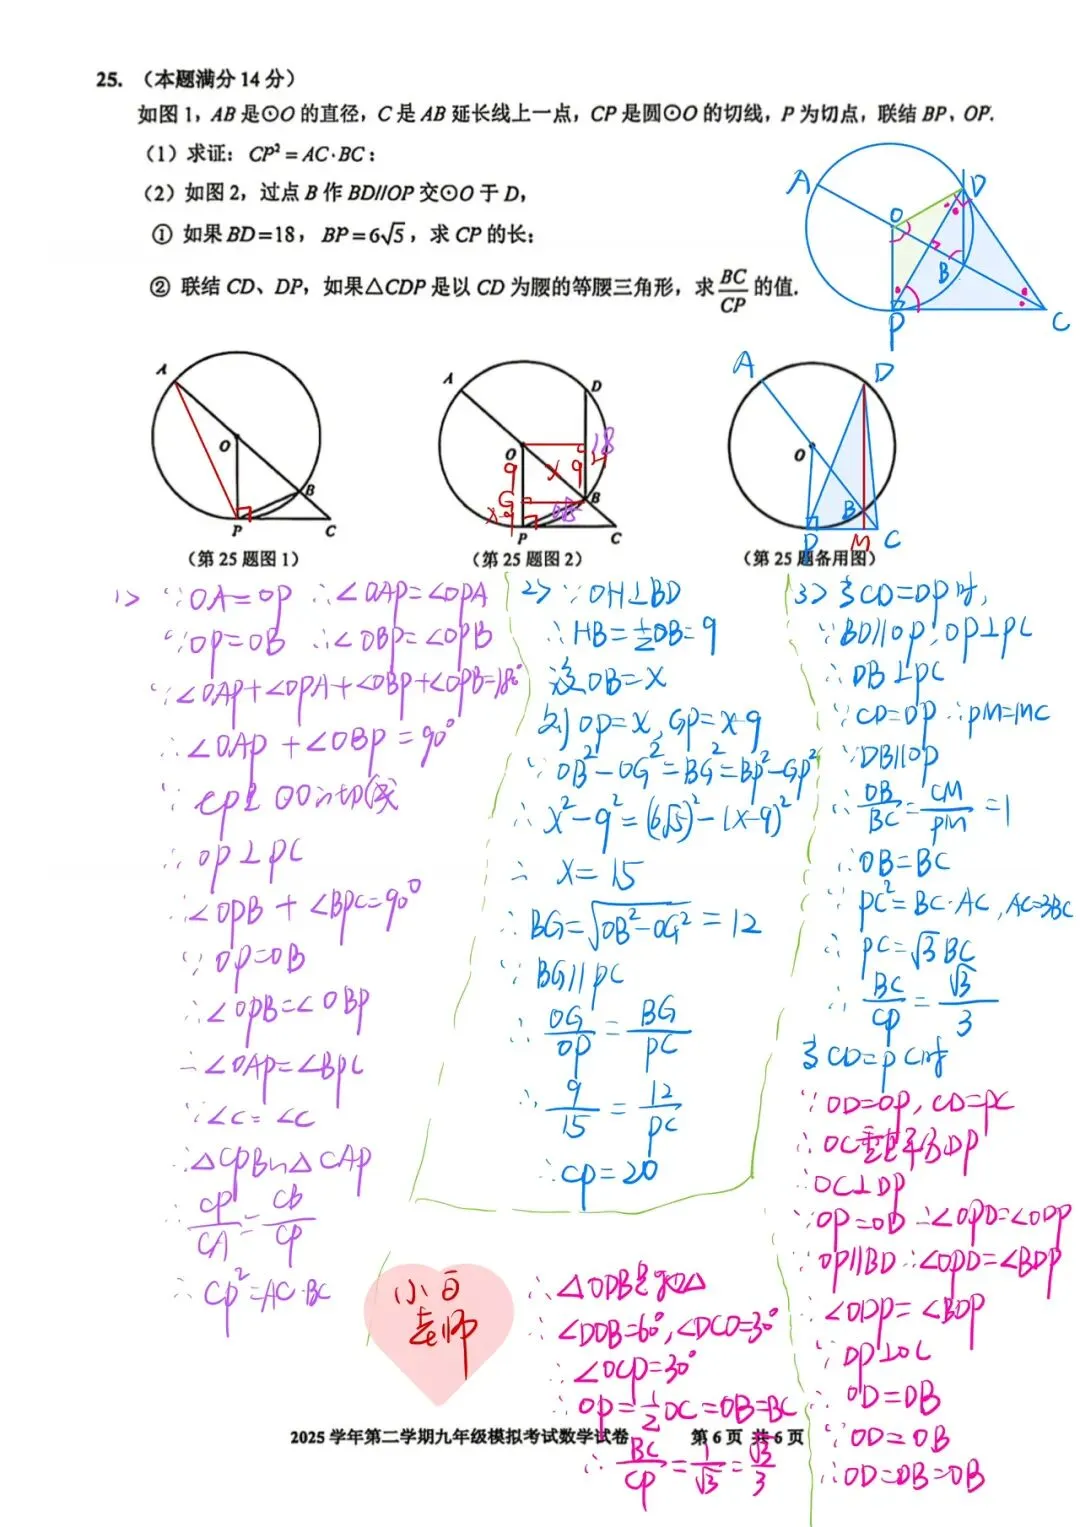 25. （本题满分 14 分）
如图 1，AB 是⊙O 的直径，C 是 AB 延长线上一点，CP 是圆⊙O 的切线，P 为切点，联结 BP、OP.
（1）求证：CP² = AC·BC；
（2）如图 2，过点 B 作 BD//OP 交⊙O 于 D，
① 如果 BD=18，BP=6√5，求 CP 的长；
② 联结 CD、DP，如果△CDP 是以 CD 为腰的等腰三角形，求 BC/CP 的值.
A O D B P C
A O B P C
A D O B P C 9 x 9 18 G x-9
A D O B P M C
（第 25 题图 1）
（第 25 题图 2）
（第 25 题备用图）
1> ∵OA=OP ∴∠OAP=∠OPA
∵OP=OB ∴∠OBP=∠OPB
∵∠OAP+∠OPA+∠OBP+∠OPB=180°
∴∠OAP+∠OBP=90°
∵CP是⊙O的切线
∴OP⊥PC
∴∠OPB+∠BPC=90°
∵OP=OB
∴∠OPB=∠OBP
∴∠OAP=∠BPC
∵∠C=∠C
∴△CPB∽△CAP
∴CP/CA=CB/CP
∴CP²=AC·BC
2> ∵OH⊥BD
∴HB=½DB=9
设OB=x
则OP=x,GP=x-9
∵OB²-OG²=BG²=BP²-GP²
∴x²-9²=(6√5)²-(x-9)²
∴x=15
∴BG=√OB²-OG²=12
∵BG//PC
∴OG/OP=BG/PC
∴9/15=12/PC
∴CP=20
3> 当CD=DP时,
∵BD//OP,OP⊥PC
∴DB⊥PC
∵CD=DP ∴PM=MC
∵DB//OP
∴OB/BC=CM/PM=1
∴OB=BC
∵PC²=BC·AC,AC=3BC
∴PC=√3BC
∴BC/CP=√3/3
当CD=PC时
∵OD=OP,CD=PC
∴OC垂直平分DP
∴OC⊥DP
∵OP=OD ∴∠OPD=∠ODP
∵OP//BD ∴∠OPD=∠BDP
∴∠ODP=∠BDP
∵DP⊥OC
∴OD=DB
∵OD=OB
∴OD=DB=OB
∴△ODB是等边△
∴∠DOB=60°,∠DCO=30°
∴∠OCP=30°
∴OP=½OC=OB=BC
∴BC/CP=1/√3=√3/3
小白
老师
2025 学年第二学期九年级模拟考试数学试卷 第 6 页 共 6 页